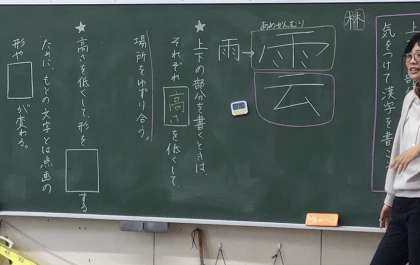 気をつけて漢字を書こ
あめかんむり
雨→雲
★上下の部分を書くときは、
それぞれ高さを低くして、
場所をゆずり合う。
★高さを低くして、形を□する
ために、もとの文字とは点画の
形や□が変わる。